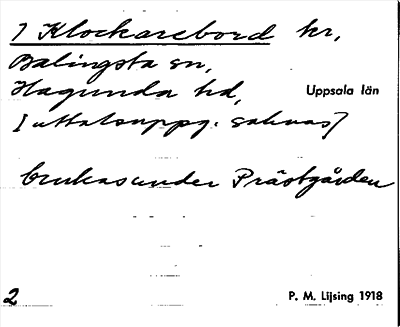 7 Klockarebord kr,
Balingsta sn,
Hagunda hd, Uppsala län
[uttalsuppg. saknas]
brukas under Prästgården
2 P. M. Lijsing 1918